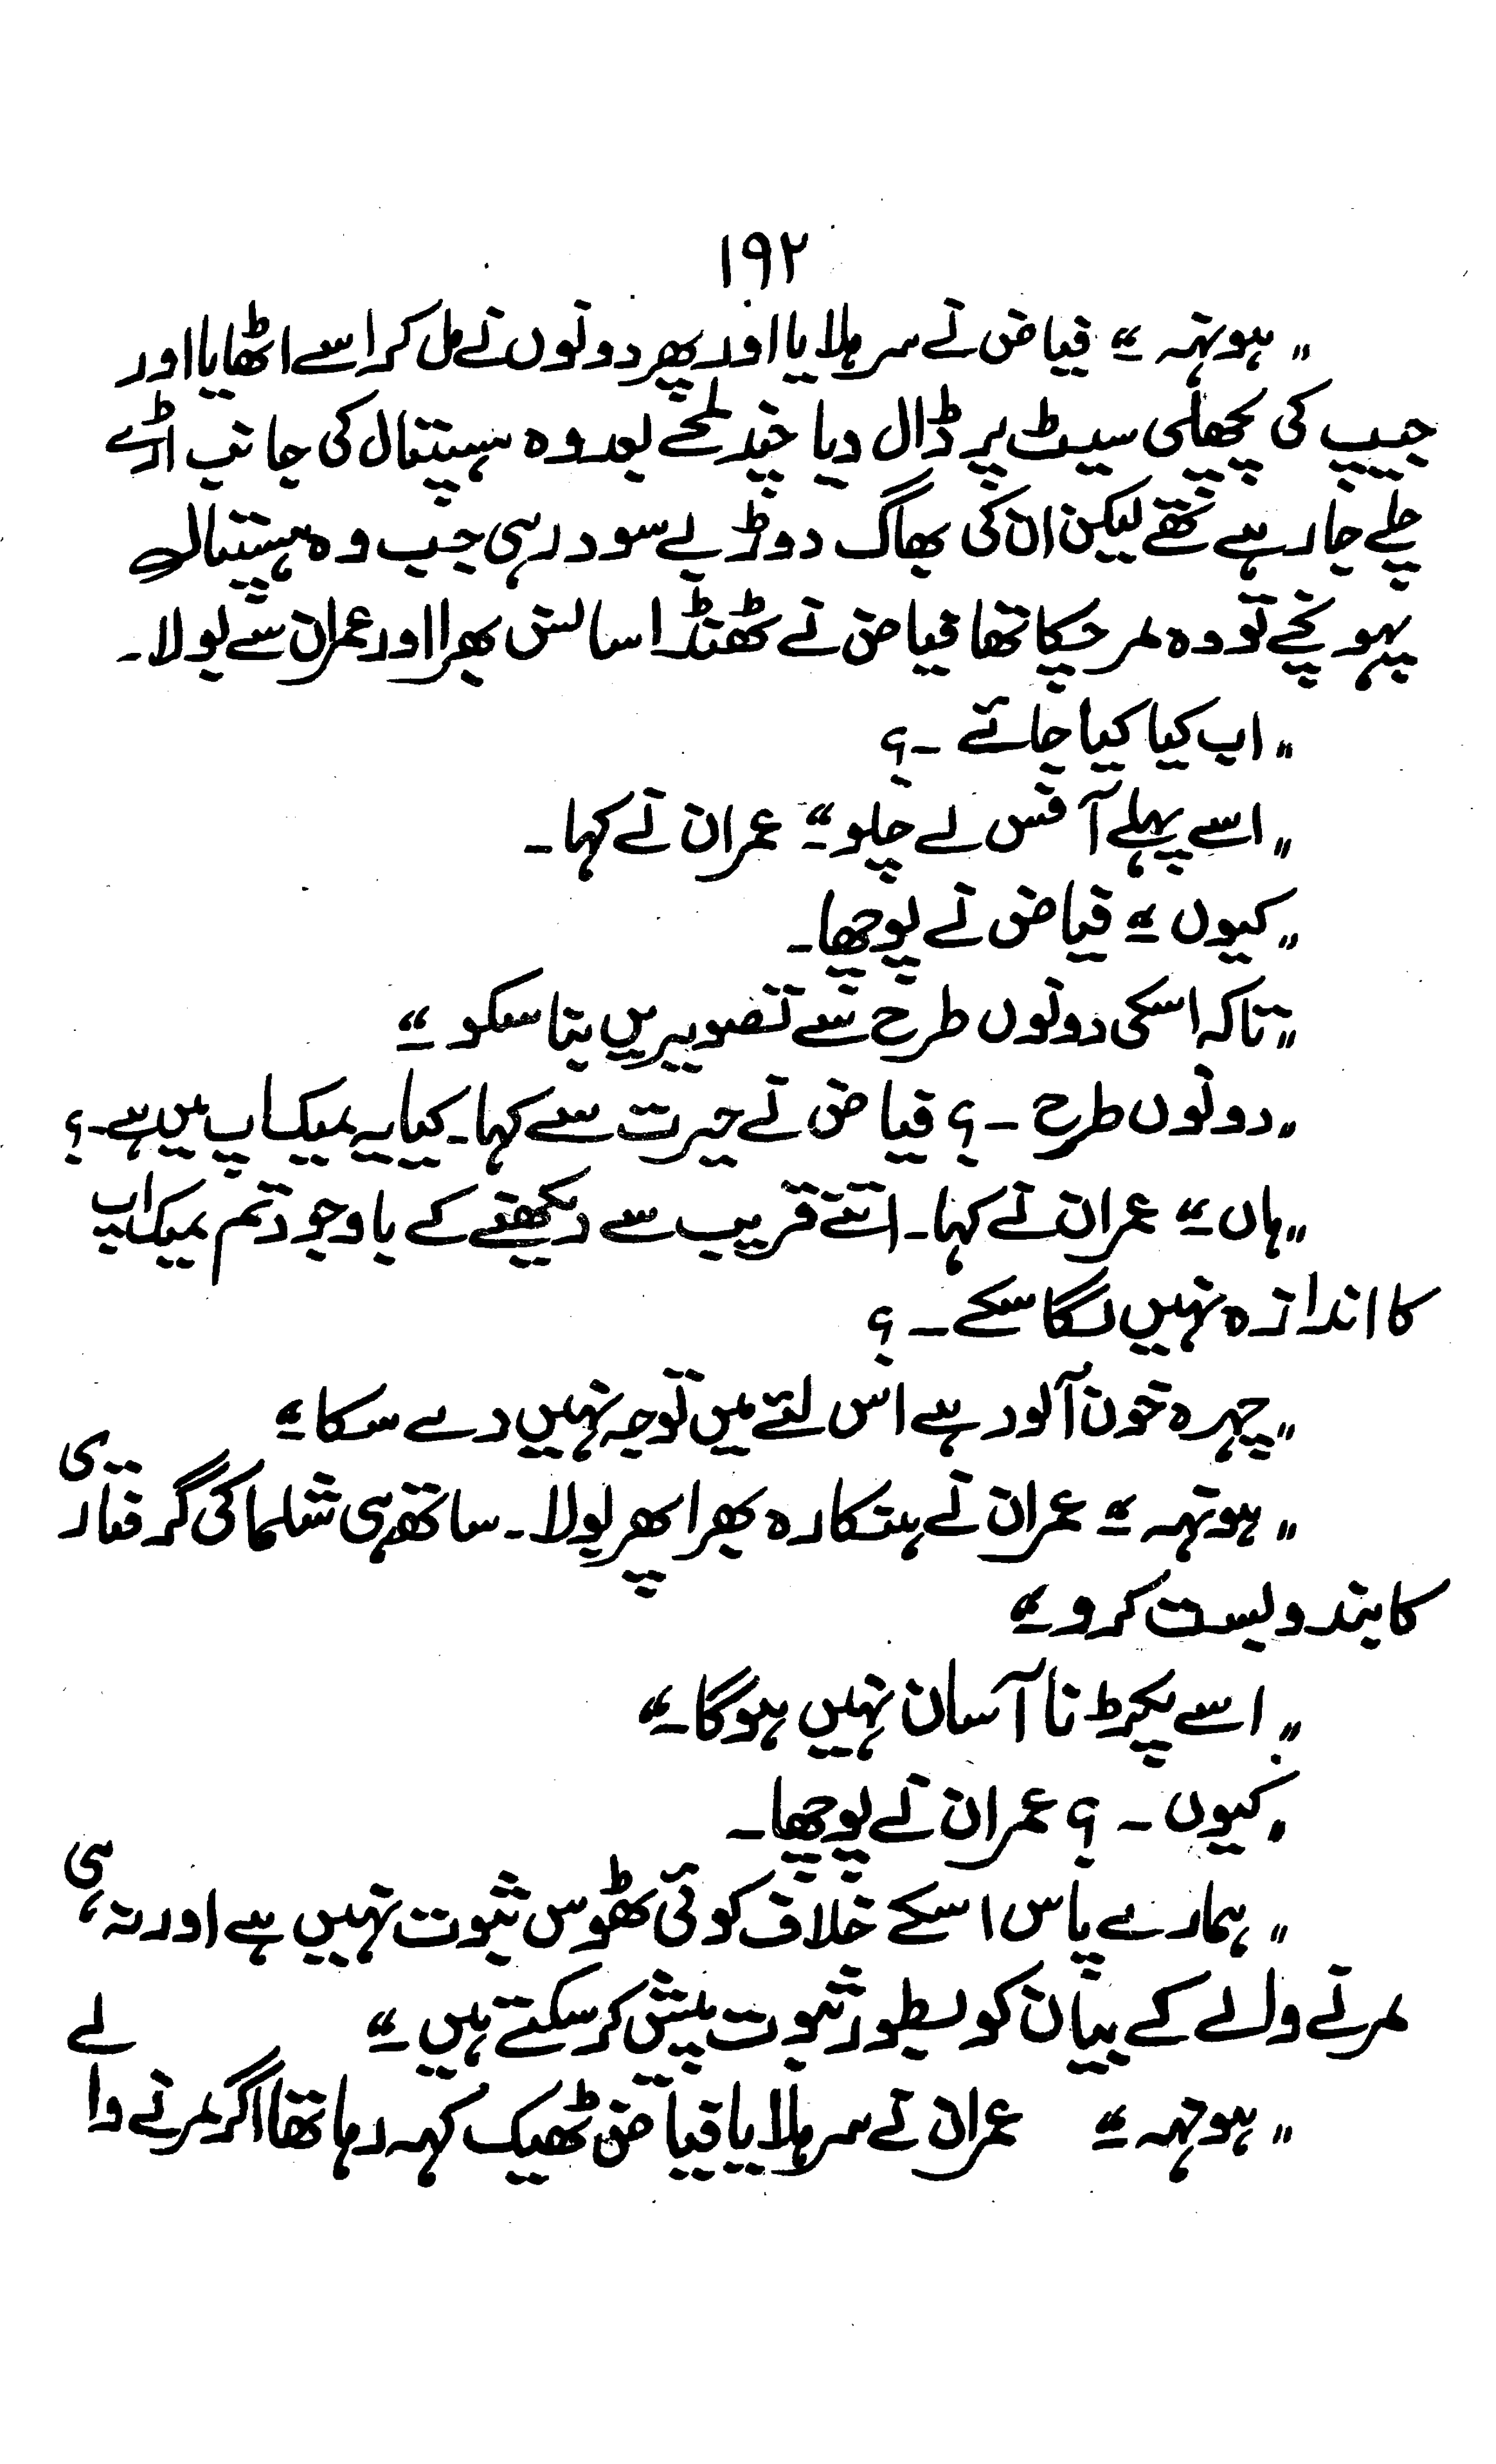 ۱۹۲
"ہونہہ۔" فیاض نے سر ہلایا اور پھر دونوں نے مل کر اسے اٹھایا اور
جیپ کی پچھلی سیٹ پر ڈال دیا چند لمحے بعد وہ ہسپتال کی جانب اڑے
چلے جا رہے تھے لیکن ان کی بھاگ دوڑ بے سود رہی جب وہ ہسپتال
پہونچے تو وہ مر چکا تھا فیاض نے ٹھنڈا سانس بھرا اور عمران سے بولا۔
"اب کیا کیا جائے۔؟
"اسے پہلے آفس لے چلو۔" عمران نے کہا۔
"کیوں۔" فیاض نے پوچھا۔
"تاکہ اسکی دونوں طرح سے تصویریں بنا سکو۔"
"دونوں طرح۔؟ فیاض نے حیرت سے کہا۔ کیا یہ میک اپ میں ہے۔؟
"ہاں۔" عمران نے کہا۔ اتنے قریب سے دیکھنے کے باوجود تم میک اپ
کا اندازہ نہیں لگا سکے۔؟
"چہرہ خون آلود ہے اس لئے میں توجہ نہیں دے سکا۔"
"ہونہہ۔" عمران نے ہنکارہ بھرا پھر بولا۔ ساتھ ہی شلما کی گرفتاری
کا بندوبست کرو۔"
"اسے پکڑنا آسان نہیں ہوگا۔"
"کیوں۔؟ عمران نے پوچھا۔
"ہمارے پاس اسکے خلاف کوئی ٹھوس ثبوت نہیں ہے اور نہ ہی
مرنے والے کے بیان کو بطور ثبوت پیش کر سکتے ہیں۔"
"ہونہہ۔" عمران نے سر ہلایا فیاض ٹھیک کہہ رہا تھا اگر مرنے والے